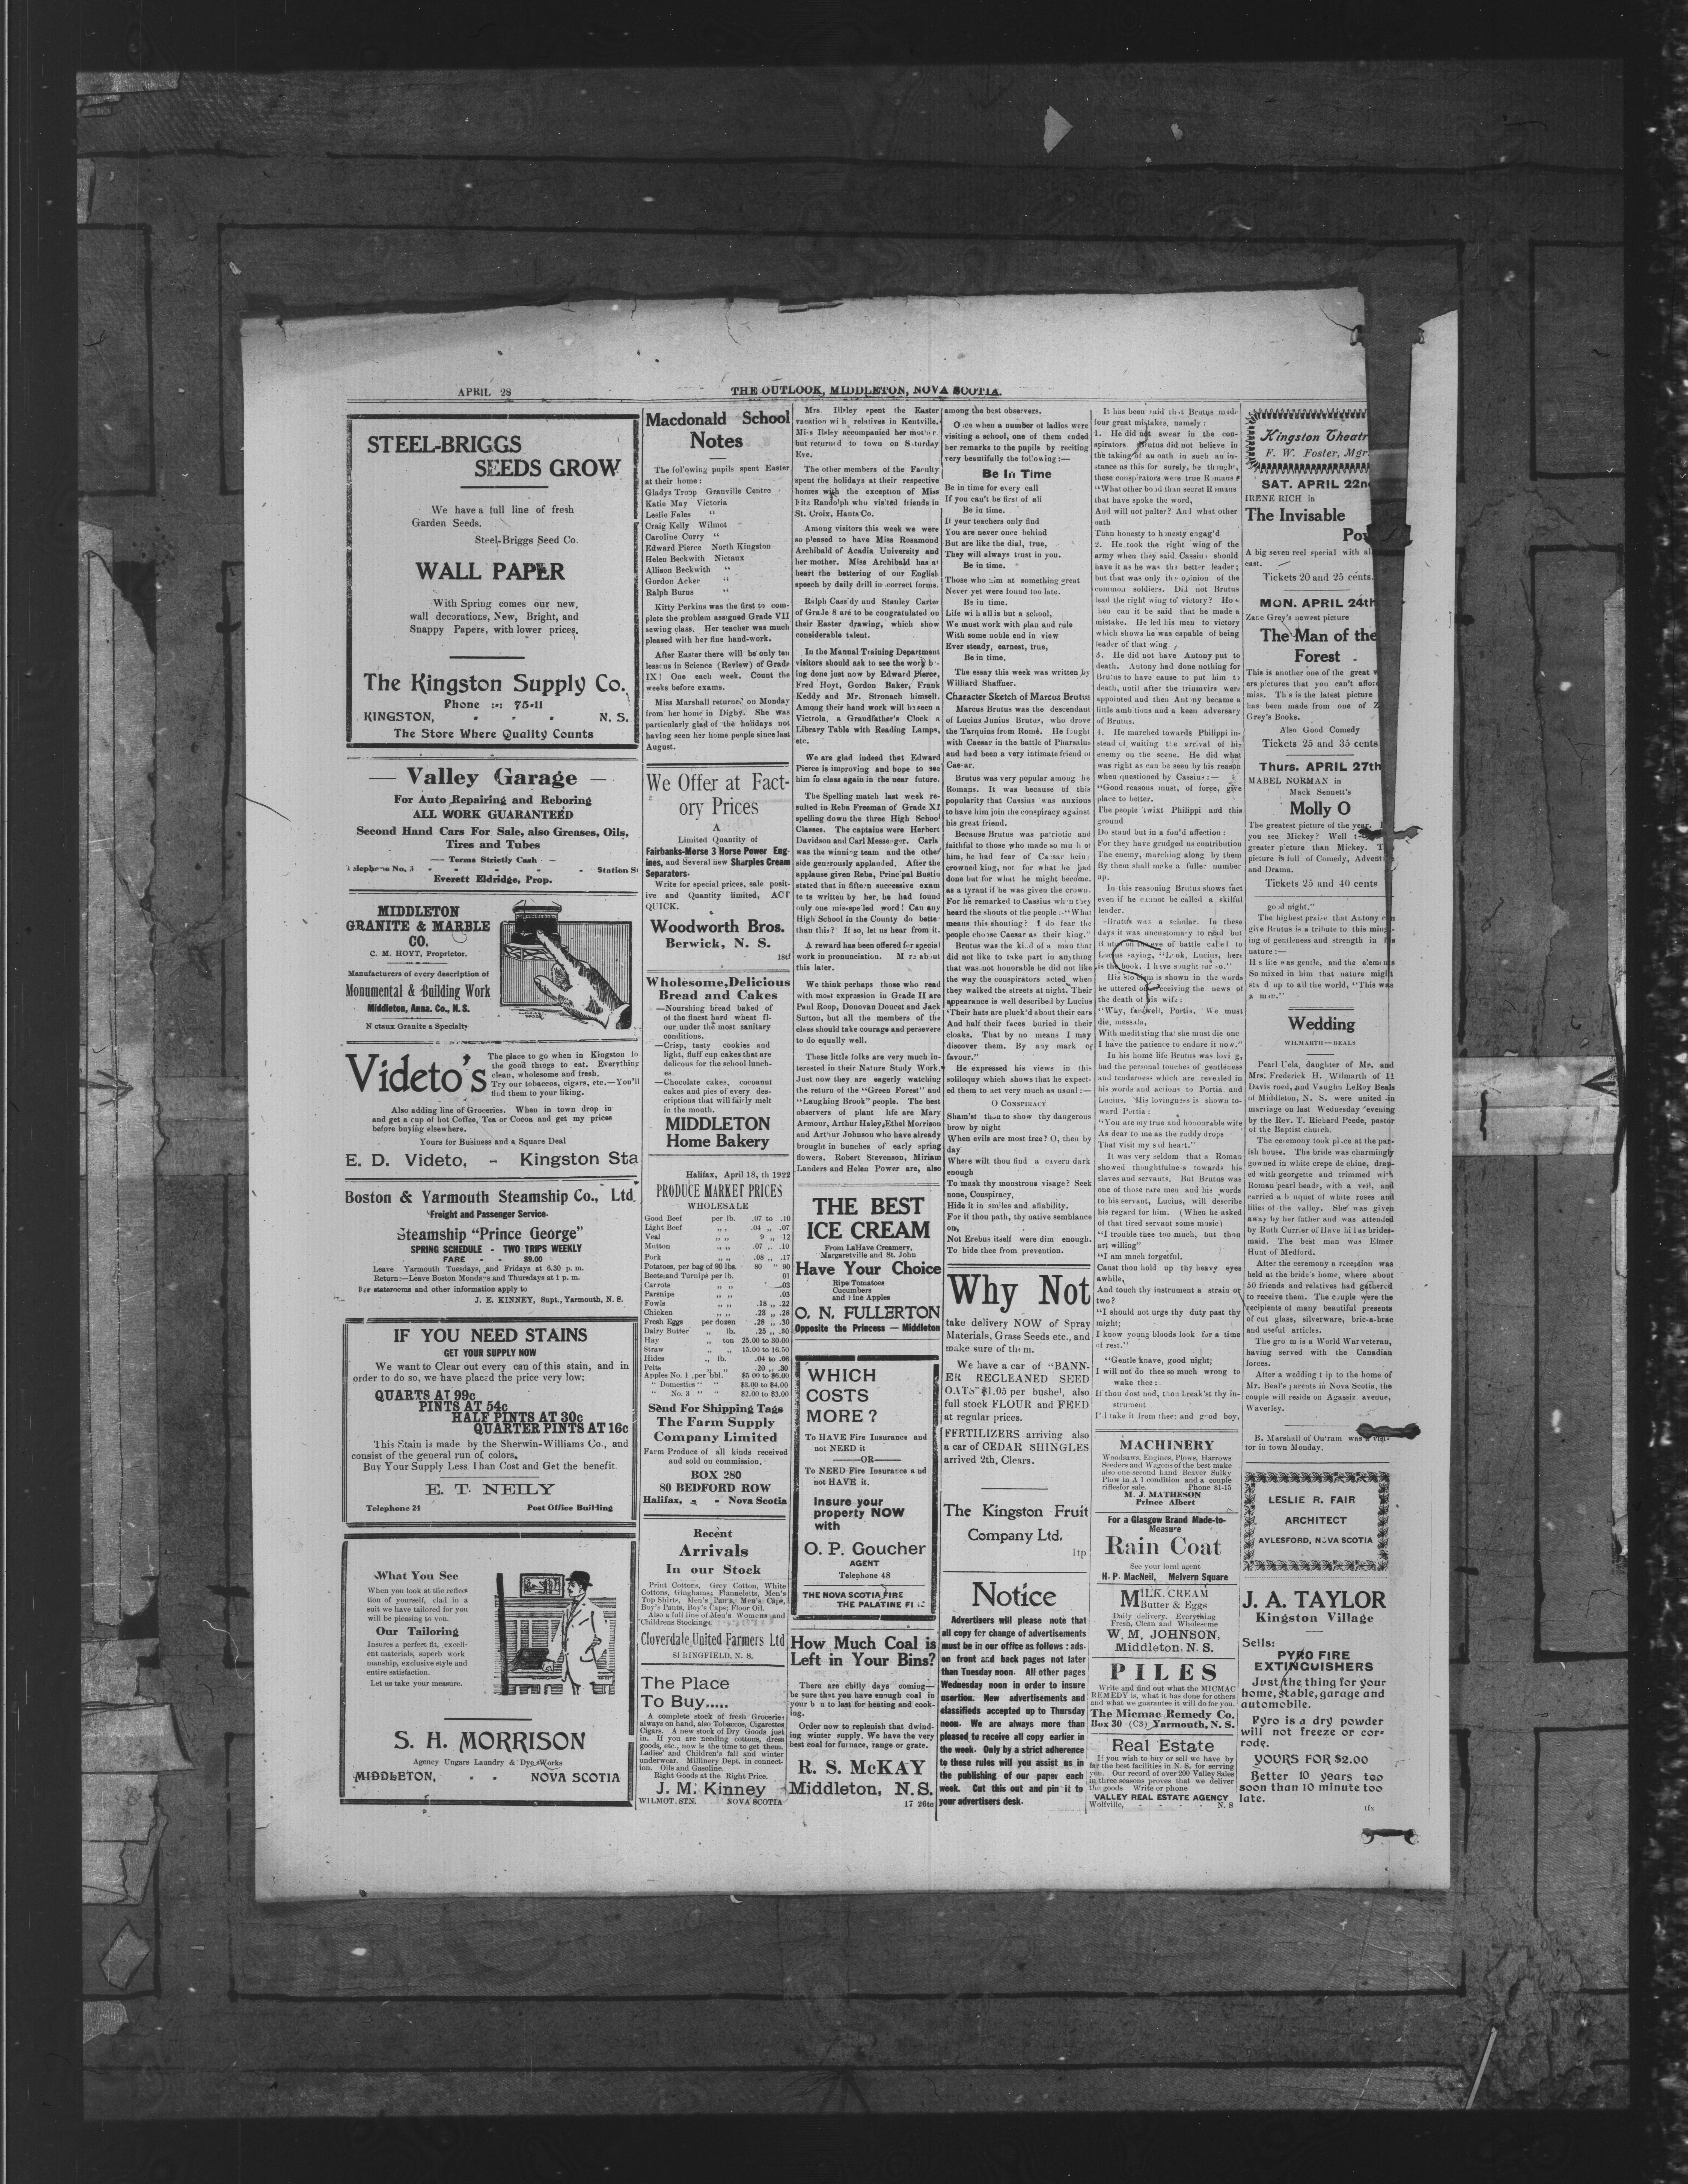 APRIL 28
THE OUTLOOK, MIDDLETON, NOVA SCOTIA.
STEEL-BRIGGS
SEEDS GROW
We have a full line of fresh
Garden Seeds.
Steel-Briggs Seed Co.
WALL PAPER
With Spring comes our new,
wall decorations, New, Bright, and
Snappy Papers, with lower prices.
The Kingston Supply Co.
Phone :-: 75-11
KINGSTON, - - - N. S.
The Store Where Quality Counts
Valley Garage
For Auto Repairing and Reboring
ALL WORK GUARANTEED
Second Hand Cars For Sale, also Greases, Oils,
Tires and Tubes
Terms Strictly Cash
Telephone No. 3 - - - Station St
Everett Eldridge, Prop.
MIDDLETON
GRANITE & MARBLE
CO.
C. M. HOYT, Proprietor.
Manufacturers of every description of
Monumental & Building Work
Middleton, Anna. Co., N.S.
Nictaux Granite a Specialty
Videto's
The place to go when in Kingston to
the good things to eat. Everything
clean, wholesome and fresh.
Try our tobaccos, cigars, etc.—You'll
find them to your liking.
Also adding line of Groceries. When in town drop in
and get a cup of hot Coffee, Tea or Cocoa and get my prices
before buying elsewhere.
Yours for Business and a Square Deal
E. D. Videto, - Kingston Sta
Boston & Yarmouth Steamship Co., Ltd.
Freight and Passenger Service.
Steamship "Prince George"
SPRING SCHEDULE - TWO TRIPS WEEKLY
FARE - - $9.00
Leave Yarmouth Tuesdays, and Fridays at 6.30 p. m.
Return:—Leave Boston Mondays and Thursdays at 1 p. m.
For staterooms and other information apply to
J. E. KINNEY, Supt., Yarmouth, N. S.
IF YOU NEED STAINS
GET YOUR SUPPLY NOW
We want to Clear out every can of this stain, and in
order to do so, we have placed the price very low;
QUARTS AT 99c
PINTS AT 54c
HALF PINTS AT 30c
QUARTER PINTS AT 16c
This Stain is made by the Sherwin-Williams Co., and
consist of the general run of colors.
Buy Your Supply Less Than Cost and Get the benefit.
E. T. NEILY
Telephone 24 Post Office Building
What You See
When you look at the reflec-
tion of yourself, clad in a
suit we have tailored for you
will be pleasing to you.
Our Tailoring
Insures a perfect fit, excell-
ent materials, superb work
manship, exclusive style and
entire satisfaction.
Let us take your measure.
S. H. MORRISON
Agency Ungars Laundry & Dye Works
MIDDLETON, - - NOVA SCOTIA
Macdonald School
Notes
The following pupils spent Easter
at their home:
Gladys Troop Granville Centre
Katie May Victoria
Leslie Fales "
Craig Kelly Wilmot
Caroline Curry "
Edward Pierce North Kingston
Helen Beckwith Nictaux
Allison Beckwith "
Gordon Acker "
Ralph Burns "
Kitty Perkins was the first to com-
plete the problem assigned Grade VII
sewing class. Her teacher was much
pleased with her fine hand-work.
After Easter there will be only ten
lessons in Science (Review) of Grade
IX! One each week. Count the
weeks before exams.
Miss Marshall returned on Monday
from her home in Digby. She was
particularly glad of the holidays not
having seen her home people since last
August.
We Offer at Fact-
ory Prices
A
Limited Quantity of
Fairbanks-Morse 3 Horse Power Eng-
ines, and Several new Sharples Cream
Separators.
Write for special prices, sale posit-
ive and Quantity limited, ACT
QUICK.
Woodworth Bros.
Berwick, N. S.
18tf
Wholesome, Delicious
Bread and Cakes
—Nourishing bread baked of
of the finest hard wheat fl-
our under the most sanitary
conditions.
—Crisp, tasty cookies and
light, fluff cup cakes that are
delicous for the school lunch-
es.
—Chocolate cakes, cocoanut
cakes and pies of every des-
criptions that will fairly melt
in the mouth.
MIDDLETON
Home Bakery
Halifax, April 18, th 1922
PRODUCE MARKET PRICES
WHOLESALE
Good Beef per lb. .07 to .10
Light Beef ,, ,, .04 ,, .07
Veal ,, ,, 9 ,, 12
Mutton ,, ,, .07 ,, .10
Pork ,, ,, .08 ,, .17
Potatoes, per bag of 90 lbs. 80 " 90
Beets and Turnips per lb. 01
Carrots ,, ,, .03
Parsnips ,, ,, .03
Fowls ,, ,, .18 ,, .22
Chicken ,, ,, .23 ,, .28
Fresh Eggs per dozen .28 ,, .30
Dairy Butter ,, lb. .25 ,, .30
Hay ,, ton 25.00 to 30.00
Straw ,, ,, 15.00 to 16.50
Hides ,, lb. .04 to .06
Pelts .20 ,, .30
Apples No. 1 per bbl. $5 00 to $6.00
" Domestics " " $3.00 to $4.00
" No. 3 " " $2.00 to $3.00
Send For Shipping Tags
The Farm Supply
Company Limited
Farm Produce of all kinds received
and sold on commission.
BOX 280
80 BEDFORD ROW
Halifax, - - Nova Scotia
Recent
Arrivals
In our Stock
Print Cottons, Grey Cotton, White
Cottons, Ginghams; Flannelette, Men's
Top Shirts, Men's Pants, Men's Caps,
Boy's Pants, Boy's Caps; Floor Oil.
Also a full line of Men's Womens and
Childrens Stockings
Cloverdale United Farmers Ltd
SPRINGFIELD, N. S.
The Place
To Buy.....
A complete stock of fresh Groceries
always on hand, also Tobaccos, Cigarettes
Cigars. A new stock of Dry Goods just
in. If you are needing cottons, dress
goods, etc., now is the time to get them.
Ladies' and Children's fall and winter
underwear. Millinery Dept. in connect-
ion. Oils and Gasoline.
Right Goods at the Right Price.
J. M. Kinney
WILMOT. STN. NOVA SCOTIA
Mrs. Illsley spent the Easter
vacation with relatives in Kentville.
Miss Ilsley accompanied her mother
but returned to town on Saturday
Eve.
The other members of the Faculty
spent the holidays at their respective
homes with the exception of Miss
Fitz Randolph who visited friends in
St. Croix, Hants Co.
Among visitors this week we were
so pleased to have Miss Rosamond
Archibald of Acadia University and
her mother. Miss Archibald has at
heart the bettering of our English
speech by daily drill in correct forms.
Ralph Cassidy and Stanley Carter
of Grade 8 are to be congratulated on
their Easter drawing, which show
considerable talent.
In the Manual Training Department
visitors should ask to see the work be-
ing done just now by Edward Pierce,
Fred Hoyt, Gordon Baker, Frank
Keddy and Mr. Stronach himself.
Among their hand work will be seen a
Victrola, a Grandfather's Clock a
Library Table with Reading Lamps,
etc.
We are glad indeed that Edward
Pierce is improving and hope to see
him in class again in the near future.
The Spelling match last week re-
sulted in Reba Freeman of Grade XI
spelling down the three High School
Classes. The captains were Herbert
Davidson and Carl Messenger. Carls
was the winning team and the other
side generously applauded. After the
applause given Reba, Principal Bustin
stated that in fifteen successive exam
te ts written by her, he had found
only one mis-spelled word! Can any
High School in the County do bette
than this? If so, let us hear from it.
A reward has been offered for special
work in pronunciation. More about
this later.
We think perhaps those who read
with most expression in Grade II are
Paul Roop, Donovan Doucet and Jack
Sutton, but all the members of the
class should take courage and persevere
to do equally well.
These little folks are very much in-
terested in their Nature Study Work.
Just now they are eagerly watching
the return of the "Green Forest" and
"Laughing Brook" people. The best
observers of plant life are Mary
Armour, Arthur Haley, Ethel Morrison
and Arthur Johnson who have already
brought in bunches of early spring
flowers. Robert Stevenson, Miriam
Landers and Helen Power are, also
THE BEST
ICE CREAM
From LaHave Creamery,
Margaretville and St. John
Have Your Choice
Ripe Tomatoes
Cucumbers
and Pine Apples
O. N. FULLERTON
Opposite the Princess — Middleton
WHICH
COSTS
MORE?
To HAVE Fire Insurance and
not NEED it
—OR—
To NEED Fire Insurance and
not HAVE it.
Insure your
property NOW
with
O. P. Goucher
AGENT
Telephone 48
THE NOVA SCOTIA FIRE
THE PALATINE
How Much Coal is
Left in Your Bins?
There are chilly days coming—
be sure that you have enough coal in
your bin to last for heating and cook-
ing.
Order now to replenish that dwind-
ing winter supply. We have the very
best coal for furnace, range or grate.
R. S. McKAY
Middleton, N.S.
17 26to
among the best observers.
Once when a number of ladies were
visiting a school, one of them ended
her remarks to the pupils by reciting
very beautifully the following:—
Be In Time
Be in time for every call
If you can't be first of all
Be in time.
If your teachers only find
You are never once behind
But are like the dial, true,
They will always trust in you.
Be in time.
Those who aim at something great
Never yet were found too late.
Be in time.
Life with all is but a school,
We must work with plan and rule
With some noble end in view
Ever steady, earnest, true,
Be in time.
The essay this week was written by
Williard Shaffner.
Character Sketch of Marcus Brutus
Marcus Brutus was the descendant
of Lucius Junius Brutus, who drove
the Tarquins from Rome. He fought
with Caesar in the battle of Pharsalus
and had been a very intimate friend of
Caesar.
Brutus was very popular among he
Romans. It was because of this
popularity that Cassius was anxious
to have him join the conspiracy against
his great friend.
Because Brutus was patriotic and
faithful to those who made so much of
him, he had fear of Caesar being
crowned king, not for what he had
done but for what he might become.
as a tyrant if he was given the crown.
For he remarked to Cassius when they
heard the shouts of the people:—"What
means this shouting? I do fear the
people choose Caesar as their king."
Brutus was the kind of a man that
did not like to take part in anything
that was not honorable he did not like
the way the conspirators acted when
they walked the streets at night. Their
appearance is well described by Lucius
'Their hats are pluck'd about their ears
And half their faces buried in their
cloaks. That by no means I may
discover them. By any mark of
favour."
He expressed his views in this
soliloquy which shows that he expect-
ed them to act very much as usual:—
O CONSPIRACY
Sham'st thou to show thy dangerous
brow by night
When evils are most free? O, then by
day
Where wilt thou find a cavern dark
enough
To mask thy monstrous visage? Seek
none, Conspiracy,
Hide it in smiles and afiability.
For if thou path, thy native semblance
on,
Not Erebus itself were dim enough,
To hide thee from prevention.
Why Not
take delivery NOW of Spray
Materials, Grass Seeds etc., and
make sure of them.
We have a car of "BANN-
ER RECLEANED SEED
OATS" $1.05 per bushel, also
full stock FLOUR and FEED
at regular prices.
FERTILIZERS arriving also
a car of CEDAR SHINGLES
arrived 2th, Clears.
The Kingston Fruit
Company Ltd.
1tp
Notice
Advertisers will please note that
all copy for change of advertisements
must be in our office as follows: ads.
on front and back pages not later
than Tuesday noon. All other pages
Wednesday noon in order to insure
nsertion. New advertisements and
classifieds accepted up to Thursday
noon. We are always more than
pleased to receive all copy earlier in
the week. Only by a strict adherence
to these rules will you assist us in
the publishing of our paper each
week. Cut this out and pin it to
your advertisers desk.
It has been said that Brutus made
four great mistakes, namely:
1. He did not swear in the con-
spirators Brutus did not believe in
the taking of an oath in such an in-
stance as this for surely, he thought,
these conspirators were true Romans
"What other bond than secret Romans
that have spoke the word,
And will not palter? And what other
oath
Than honesty to honesty engag'd
2. He took the right wing of the
army when they said Cassius should
have it as he was the better leader;
but that was only the opinion of the
common soldiers. Did not Brutus
lead the right wing to victory? How
hen can it be said that he made a
mistake. He led his men to victory
which shows he was capable of being
leader of that wing
3. He did not have Antony put to
death. Antony had done nothing for
Brutus to have cause to put him to
death, until after the triumvirs were
appointed and then Antony became a
little ambitious and a keen adversary
of Brutus.
4. He marched towards Philippi in-
stead of waiting the arrival of his
enemy on the scene. He did what
was right as can be seen by his reason
when questioned by Cassius:—
"Good reasons must, of force, give
place to better.
The people 'twixt Philippi and this
ground
Do stand but in a forc'd affection:
For they have grudged us contribution
The enemy, marching along by them
By them shall make a fuller number
up.
In this reasoning Brutus shows fact
even if he cannot be called a skilful
leader.
Brutus was a scholar. In these
days it was uncustomary to read but
Brutus on the eve of battle called to
Lucius saying, "Look, Lucius, here
is the book, I have sought for so."
His stoicism is shown in the words
he uttered on receiving the news of
the death of his wife:
"Why, farewell, Portia. We must
die, messala,
With meditating that she must die one
I have the patience to endure it now."
In his home life Brutus was loving,
had the personal touches of gentleness
and tenderness which are revealed in
his words and actions to Portia and
Lucius. His lovingness is shown to-
ward Portia:
"You are my true and honourable wife
As dear to me as the ruddy drops
That visit my sad heart."
It was very seldom that a Roman
showed thoughtfulness towards his
slaves and servants. But Brutus was
one of those rare men and his words
to his servant, Lucius, will describe
his regard for him. (When he asked
of that tired servant some music)
"I trouble thee too much, but thou
art willing"
"I am much forgetful.
Canst thou hold up thy heavy eyes
awhile,
And touch thy instrument a strain or
two?
"I should not urge thy duty past thy
might;
I know young bloods look for a time
of rest."
"Gentle knave, good night;
I will not do thee so much wrong to
wake thee:
If thou dost nod, thou break'st thy in-
strument
I'll take it from thee; and good boy,
MACHINERY
Woodsaws, Engines, Plows, Harrows
Seeders and Wagons of the best make
also one-second hand Beaver Sulky
Plow in A 1 condition and a couple
rifles for sale. Phone 81-15
M. J. MATHESON
Prince Albert
For a Glasgow Brand Made-to-
Measure
Rain Coat
See your local agent
H. P. MacNeil, Melvern Square
MILK. CREAM
Butter & Eggs
Daily delivery. Everything
Fresh, Clean and Wholesome
W. M. JOHNSON,
Middleton. N. S.
PILES
Write and find out what the MICMAC
REMEDY is, what it has done for others
and what we guarantee it will do for you.
The Micmac Remedy Co.
Box 30 (C3) Yarmouth, N. S.
Real Estate
If you wish to buy or sell we have by
far the best facilities in N. S. for serving
you. Our record of over 200 Valley Sales
in three seasons proves that we deliver
the goods Write or phone
VALLEY REAL ESTATE AGENCY
Wolfville, - - - N. S
Kingston Theatr
F. W. Foster, Mgr
SAT. APRIL 22n
IRENE RICH in
The Invisable
Po
A big seven reel special with al
cast.
Tickets 20 and 25 cents.
MON. APRIL 24th
Zane Grey's newest picture
The Man of the
Forest
This is another one of the great
ers pictures that you can't affor
miss. This is the latest picture
has been made from one of Z
Grey's Books.
Also Good Comedy
Tickets 25 and 35 cents
Thurs. APRIL 27th
MABEL NORMAN in
Mack Sennett's
Molly O
The greatest picture of the year.
you see Mickey? Well t
greater picture than Mickey. T
picture is full of Comedy, Advent
and Drama.
Tickets 25 and 40 cents
good night."
The highest praise that Antony can
give Brutus is a tribute to this ming-
ing of gentleness and strength in his
nature:—
His life was gentle, and the elements
So mixed in him that nature might
stand up to all the world, "This was
a man."
Wedding
WILMARTH—BEALS
Pearl Uela, daughter of Mr. and
Mrs. Frederick H. Wilmarth of 11
Davis roed, and Vaughn LeRoy Beals
of Middleton, N. S. were united in
marriage on last Wednesday evening
by the Rev. T. Richard Peede, pastor
of the Baptist church.
The ceremony took place at the par-
ish house. The bride was charmingly
gowned in white crepe de chine, drap-
ed with georgette and trimmed with
Roman pearl beads, with a veil, and
carried a bouquet of white roses and
lilies of the valley. She was given
away by her father and was attended
by Ruth Currier of Haverhill as brides-
maid. The best man was Elmer
Hunt of Medford.
After the ceremony a reception was
held at the bride's home, where about
50 friends and relatives had gathered
to receive them. The couple were the
recipients of many beautiful presents
of cut glass, silverware, bric-a-brac
and useful articles.
The groom is a World War veteran,
having served with the Canadian
forces.
After a wedding trip to the home of
Mr. Beal's parents in Nova Scotia, the
couple will reside on Agassiz avenue,
Waverley.
B. Marshall of Outram was a visi-
tor in town Monday.
LESLIE R. FAIR
ARCHITECT
AYLESFORD, NOVA SCOTIA
J. A. TAYLOR
Kingston Village
Sells:
PYRO FIRE
EXTINGUISHERS
Just the thing for your
home, stable, garage and
automobile.
Pyro is a dry powder
will not freeze or cor-
rode.
YOURS FOR $2.00
Better 10 years too
soon than 10 minute too
late.
tfx